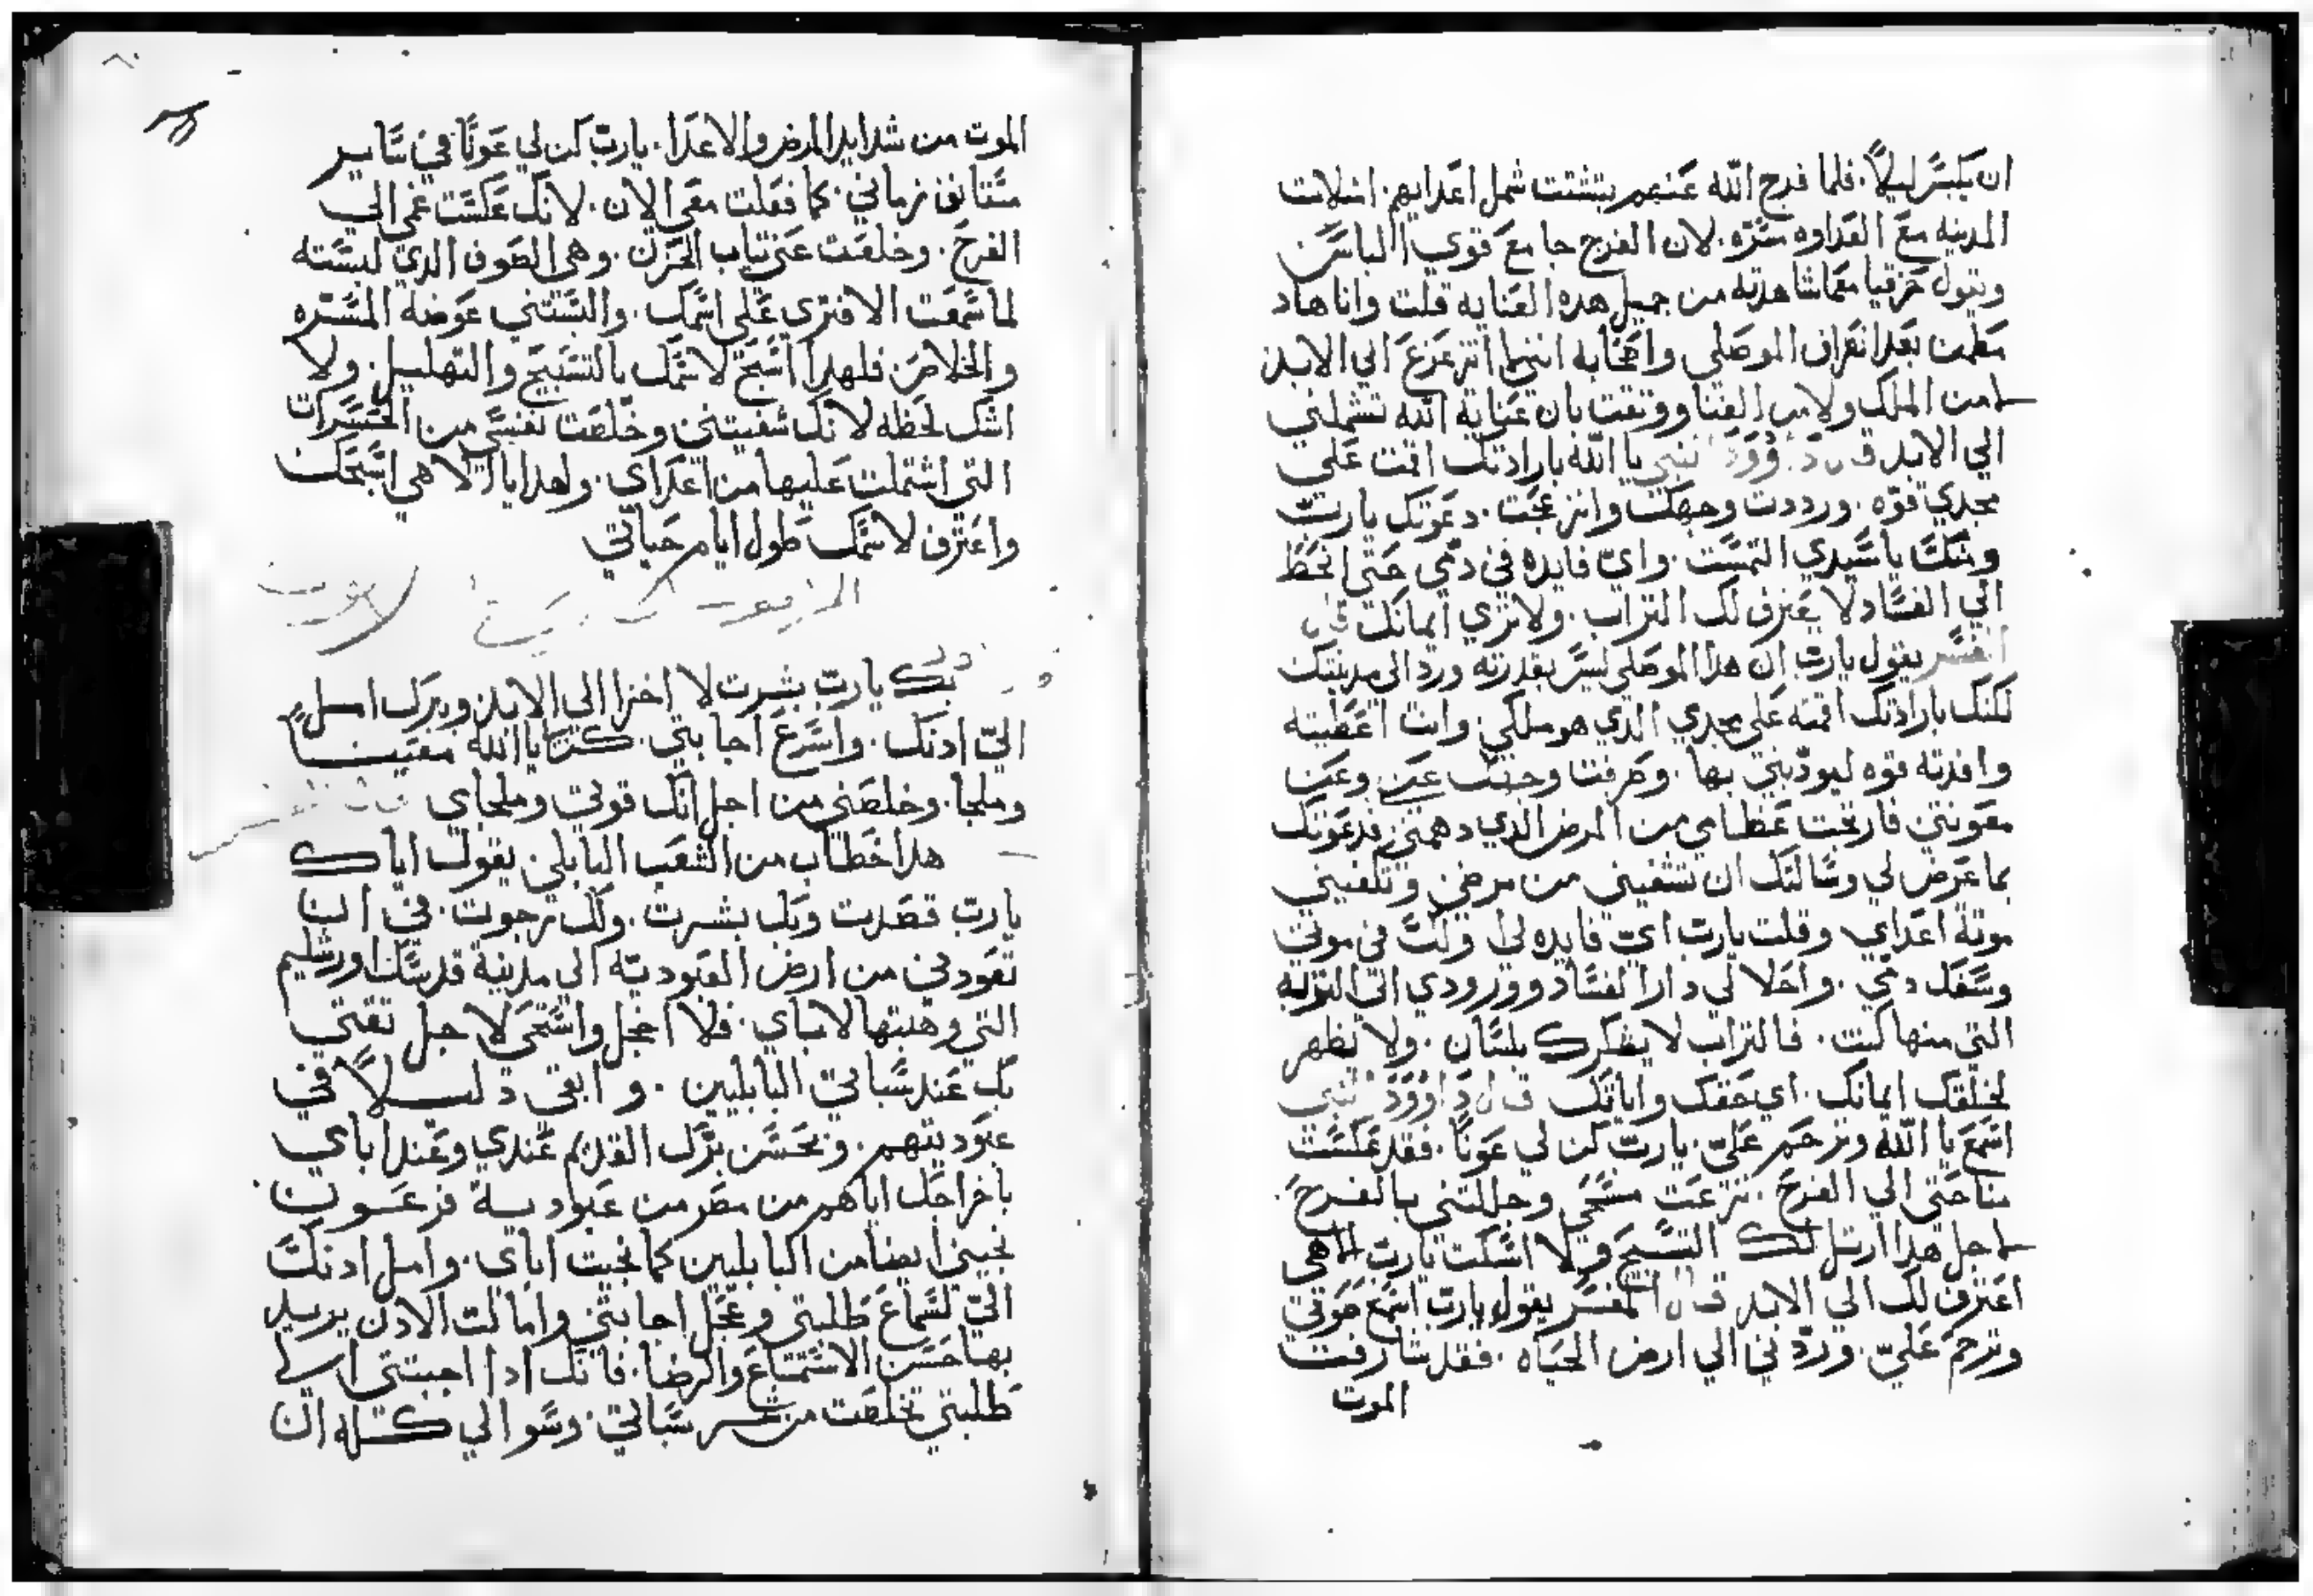 ان يكبسر ليلاً. فلما فرج الله عنهم بتشتت شمل اعدايهم. امتلات
المدينه مع الغداوه مسَره. لان الفرج جا مع قوي الباس
ويقول حزقيا معما شاهدته من جميل هذه العنايه قلت وانا هاد
مطمن بعد انصراف الموصلي واصحابه انني ما اتزعزع الي الابد
لا من الملك ولا من الفنا ووتقت بان عناية الله تشملني
الي الابد قال داوود النبي يا الله بارادتك اقمت علي
مجدي قوه. ورددت وجهك وانزعجت. دعوتك يارب
ومنك يا سيدي التمست. واي فايده في دمي حتي انحط
الي الفساد لا يعترف لك التراب. ولا تري ايمانك قال
المفسر يقول يارب ان هدا الموصلي ليس بقدرته ورد الي مدينتك
لكنك بارادتك اقمته علي مجدي الدي هو ملكي وانت اعطيته
وافدته قوه ليودّبني بها. وصرفت وجهك عني وعن
معونتي فارتجت عظامي من المرض الدي دهمني فدعوتك
بما عرض لي وسالتك ان تشفيني من مرضي وتكفيني
موتة اعداي وقلت يارب اي فايده لي ولك في موتي
وسفك دمي. واحلالي دار الفساد وورودي الي التربه
التي منها كنت. فالتراب لا يشكرك بلسان. ولا يظهر
لخلقك ايمانك. اي حقك واياتك قال داوود النبي
اسمع يا الله وترحم عليّ. يارب كن لي عوناً. فقد عكست
مناحتي الي الفرح. نزعت مسحي وجللتني بالفرح
لاجل هدا ارتل لك التسبيح ولا اسكت يارب الاهي
اعترف لك الي الابد قال المفسر يقول يارب اسمع صوتي
وترحم عليّ. وردّني الي ارض الحياه. فقد شارفت
الموت
الموت من شدايد المرض والاعدا. يارب كن لي عوناً في ساير
مستانف زماني. كما فعلت معي الان. لانك عكست غمي الي
الفرح. وخلعت عني تياب الحزن. وهي الصوف الدي لبسته
لما سمعت الافتري علي اسمك. والبستني عوضه المسره
والخلاص فلهدا اسبح لاسمك بالتسبيح والتهليل. ولا
اسك لحظه لانك شفيتني وخلصت نفسي من الحسرات
التي اشتملت عليها من اعداي. ولهدا يا الاهي اسبحك
واعترف لاسمك طول ايام حياتي
المزمور
بك يارب بشرت لا اخزا الي الابد وببرك امل
اليّ ادنك. واسرع اجابتي. كن يا الله مغيتا
وملجا. وخلصني من اجل انك قوتي وملجاي
هدا خطاب من الشعب البابلي يقول اياك
يارب قصدت وبك بشرت. ولك ترجوت. في ان
تعودني من ارض العبوديه الي مدينة قدسك اورشليم
التي وهبتها لاباي. فلا اخجل واستحي لاجل تقتي
بك عند سباتي البابليين. و ابقي دليلاً في
عبوديتهم. وبحسن برّك القديم عندي وعند اباي
باخراجك اياهم من مصر من عبودية فرعون
نجيني ايضا من البابليين كما نجيت اباي. وامل ادنك
اليّ لسماع طلبتي وعجل اجابتي وامالت الادن يريد
بها حسن الاستماع والرضا. فانك ادا اجبتني الي
طلبتي تخلصت من شر سباتي. وسوالي كله ان